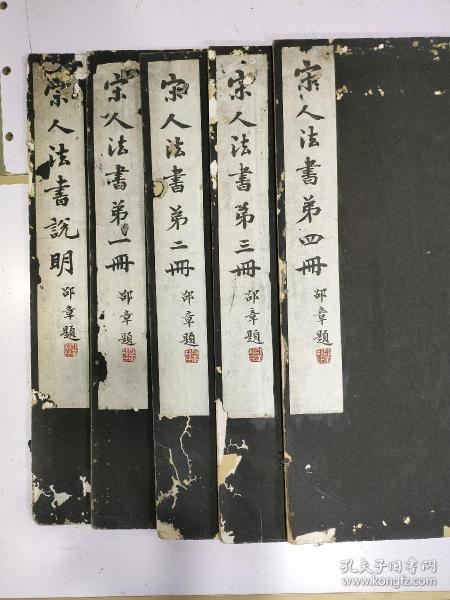 宋人法書說明
邵章題
宋人法書第一冊
邵章題
宋人法書第二冊
邵章題
宋人法書第三冊
邵章題
宋人法書第四冊
邵章題
孔夫子旧书网
www.kongfz.com